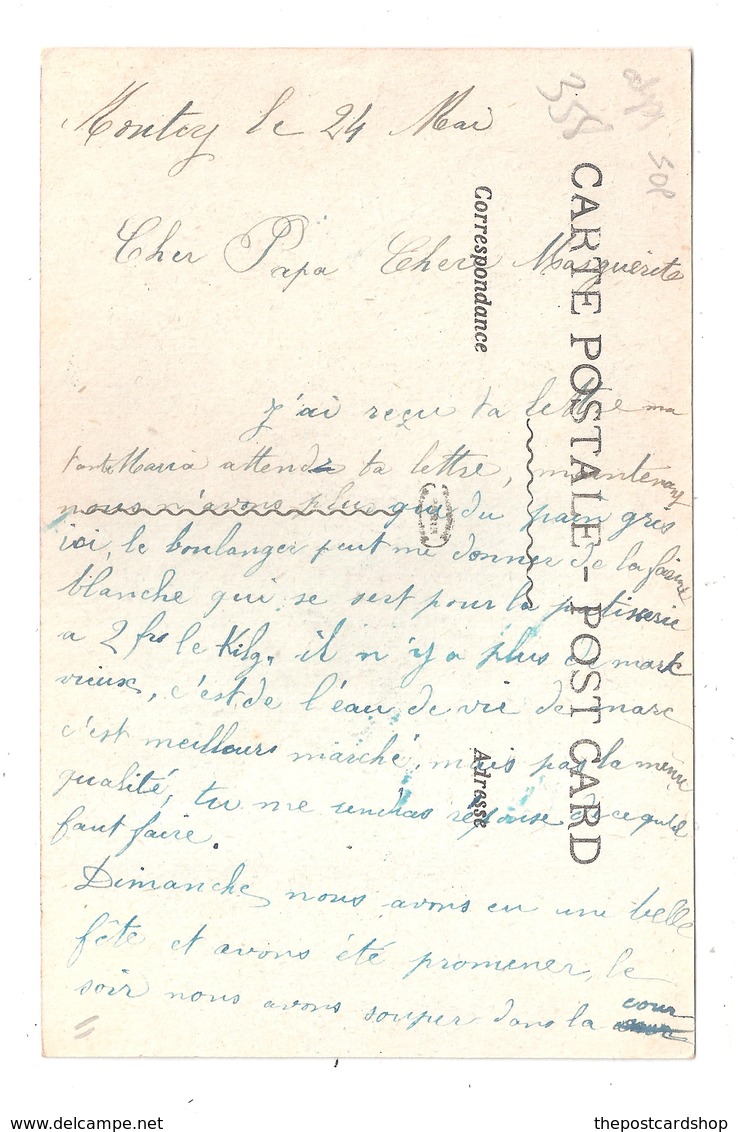 Montcy le 24 Mai
Cher Papa Chere Marguerite
j'ai reçu ta lettre ma
tante Maria attend ta lettre, maintenant
nous n'avons plus que du pain gris
ici, le boulanger peut me donner de la farine
blanche qui se sert pour la patisserie
a 2 frs le Kilg. il n'y a plus de mark
vieux, c'est de l'eau de vie de marc
c'est meilleurs marché, mais pas la même
qualité, tu me rendras réponse de ce qu'il
faut faire.
Dimanche nous avons eu une belle
fête et avons été promener, le
soir nous avons souper dans la cour
CARTE POSTALE - POST CARD
Correspondance
Adresse
358
50p
delcampe.net
thepostcardshop